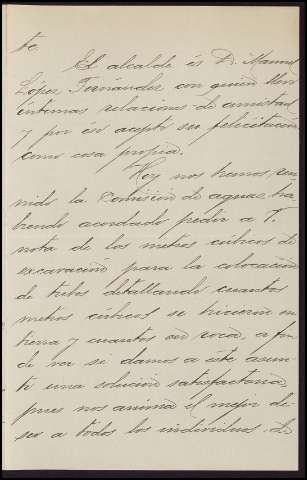 te
El alcalde és D. Manuel
López Fernández con quien llevo
íntimas relaciones de amistad
y por ésó acepto su felicitación
como cosa propia.
Hoy nos hemos reu
nido la Comisión de aguas, ha
biendo acordado pedir a V.
nota de los metros cúbicos de
excavación para la colocación
de tubos detallando cuantos
metros cúbicos se hicieron en
tierra y cuantos en roca, a fin
de ver si damos a éste asun
to una solución satisfactoria,
pues nos anima el mejor de-
seo a todos los individuos de